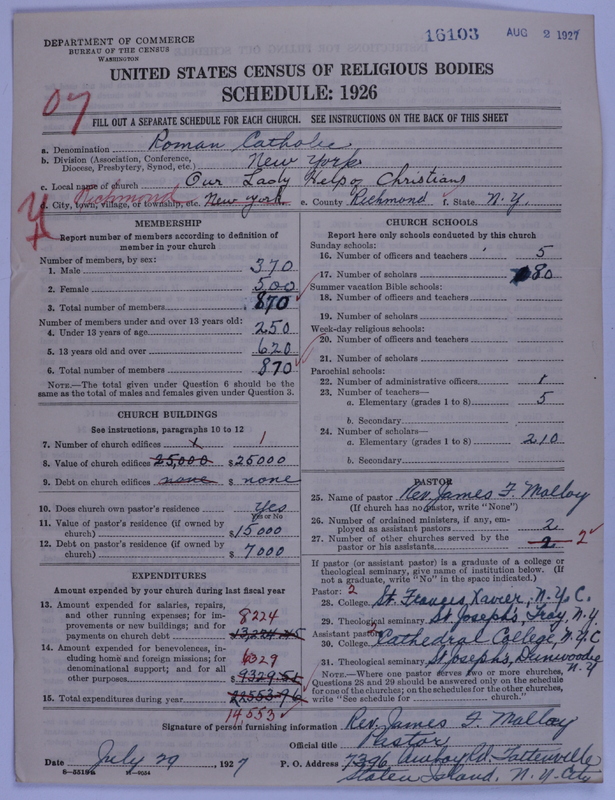 DEPARTMENT OF COMMERCE
BUREAU OF THE CENSUS
WASHINGTON
16103 AUG 2 1927
UNITED STATES CENSUS OF RELIGIOUS BODIES
SCHEDULE: 1926
07
FILL OUT A SEPARATE SCHEDULE FOR EACH CHURCH. SEE INSTRUCTIONS ON THE BACK OF THIS SHEET
a. Denomination Roman Catholic
b. Division (Association, Conference, Diocese, Presbytery, Synod, etc.) New York
c. Local name of church Our Lady Help of Christians
Richmond
d. City, town, village, or township, etc. New York e. County Richmond f. State N.Y.
MEMBERSHIP
Report number of members according to definition of
member in your church
Number of members, by sex:
1. Male 370
2. Female 500
3. Total number of members 870
Number of members under and over 13 years old:
4. Under 13 years of age 250
5. 13 years old and over 620
6. Total number of members 870
NOTE.—The total given under Question 6 should be
the same as the total of males and females given under Question 3.
CHURCH BUILDINGS
See instructions, paragraphs 10 to 12
7. Number of church edifices 1 1
8. Value of church edifices 25,000 $25000
9. Debt on church edifices none $ none
10. Does church own pastor's residence Yes
Yes or No
11. Value of pastor's residence (if owned by
church) $15000
12. Debt on pastor's residence (if owned by
church) $ 7000
EXPENDITURES
Amount expended by your church during last fiscal year
13. Amount expended for salaries, repairs,
and other running expenses; for im-
provements or new buildings; and for
payments on church debt 8224
14. Amount expended for benevolences, in-
cluding home and foreign missions; for
denominational support; and for all
other purposes 6329 9329.55
15. Total expenditures during year 22553.96
14,553
CHURCH SCHOOLS
Report here only schools conducted by this church
Sunday schools:
16. Number of officers and teachers 5
17. Number of scholars 80
Summer vacation Bible schools:
18. Number of officers and teachers
19. Number of scholars
Week-day religious schools:
20. Number of officers and teachers
21. Number of scholars
Parochial schools:
22. Number of administrative officers 1
23. Number of teachers—
a. Elementary (grades 1 to 8) 5
b. Secondary
24. Number of scholars—
a. Elementary (grades 1 to 8) 210
b. Secondary
PASTOR
25. Name of pastor Rev. James F. Malloy
(If church has no pastor, write "None")
26. Number of ordained ministers, if any, em-
ployed as assistant pastors 2
27. Number of other churches served by the
pastor or his assistants 2 2
If pastor (or assistant pastor) is a graduate of a college or
theological seminary, give name of institution below. (If
not a graduate, write "No" in the space indicated.)
Pastor: 2
28. College St. Francis Xavier, N.Y.C.
29. Theological seminary St. Josephs, Troy, N.Y.
Assistant pastor:
30. College Cathedral College, N.Y.C
31. Theological seminary St. Josephs, Dunwoodie
N.Y
NOTE.—Where one pastor serves two or more churches,
Questions 28 and 29 should be answered only on the schedule
for one of the churches; on the schedules for the other churches,
write "See schedule for church."
Signature of person furnishing information Rev. James F. Malloy
Official title Pastor
Date July 29, 1927 P. O. Address 7396 Amboy Rd. Tottenville
Staten Island, N.Y. City